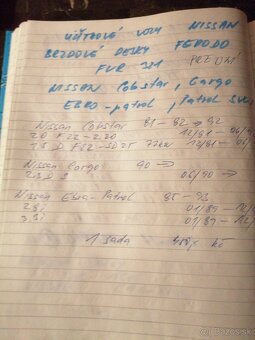 UŽITKOVÉ VOZY NISSAN
BRZDOVÉ DESKY FERODO
FVR 321 PREDNÍ
NISSAN Cobstar, Cargo
EBRO-patrol, Patrol
Nissan Cobstar 81-82 → 92
2.0 F22-Z20 12/81 → 06/
2.5 D F22-SD25 77kw 12/81 → 06/
Nissan Cargo 90 →
2.3 D 06/90 →
Nissan Ebro-Patrol 85-93
2.8i 01/89 → 12/
3.3i 01/89 → 12/
1 sada 450,- Kč
© Bazos.sk